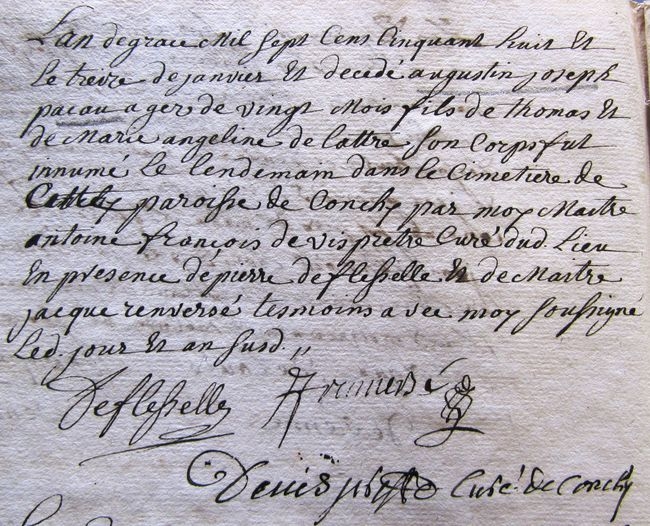 Lan degrace Mil Sept Cens Cinquant huit Et
Le treize de janvier Et decedé augustin joseph
pacau ager de vingt Mois fils de thomas Et
de Marie angeline de lattre Son Corps fut
innumé Le Lendemain dans le Cimetiere de
paroisse de Conchy par moy Maitre
antoine françois de vis prêtre Curé dud. Lieu
En presence de pierre deflesselle Et de Maitre
jacque renversé tesmoins avec moy Soussigné
Led. jour Et an Susd.
Deflesselle renversé
Devis Curé de Conchy